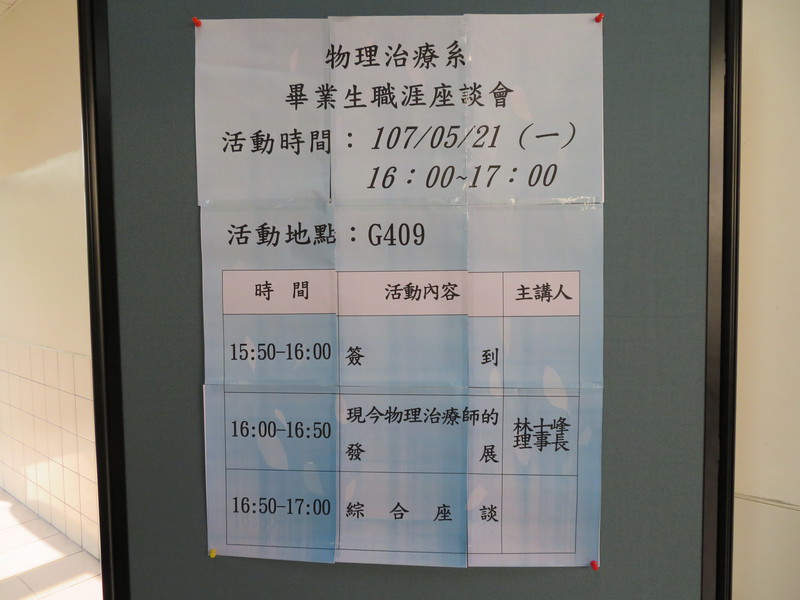 物理治療系
畢業生職涯座談會
活動時間：107/05/21（一）
16：00~17：00
活動地點：G409
時 間 活動內容 主講人
15:50-16:00 簽 到
16:00-16:50 現今物理治療師的 林士峰
發 展 理事長
16:50-17:00 綜 合 座 談